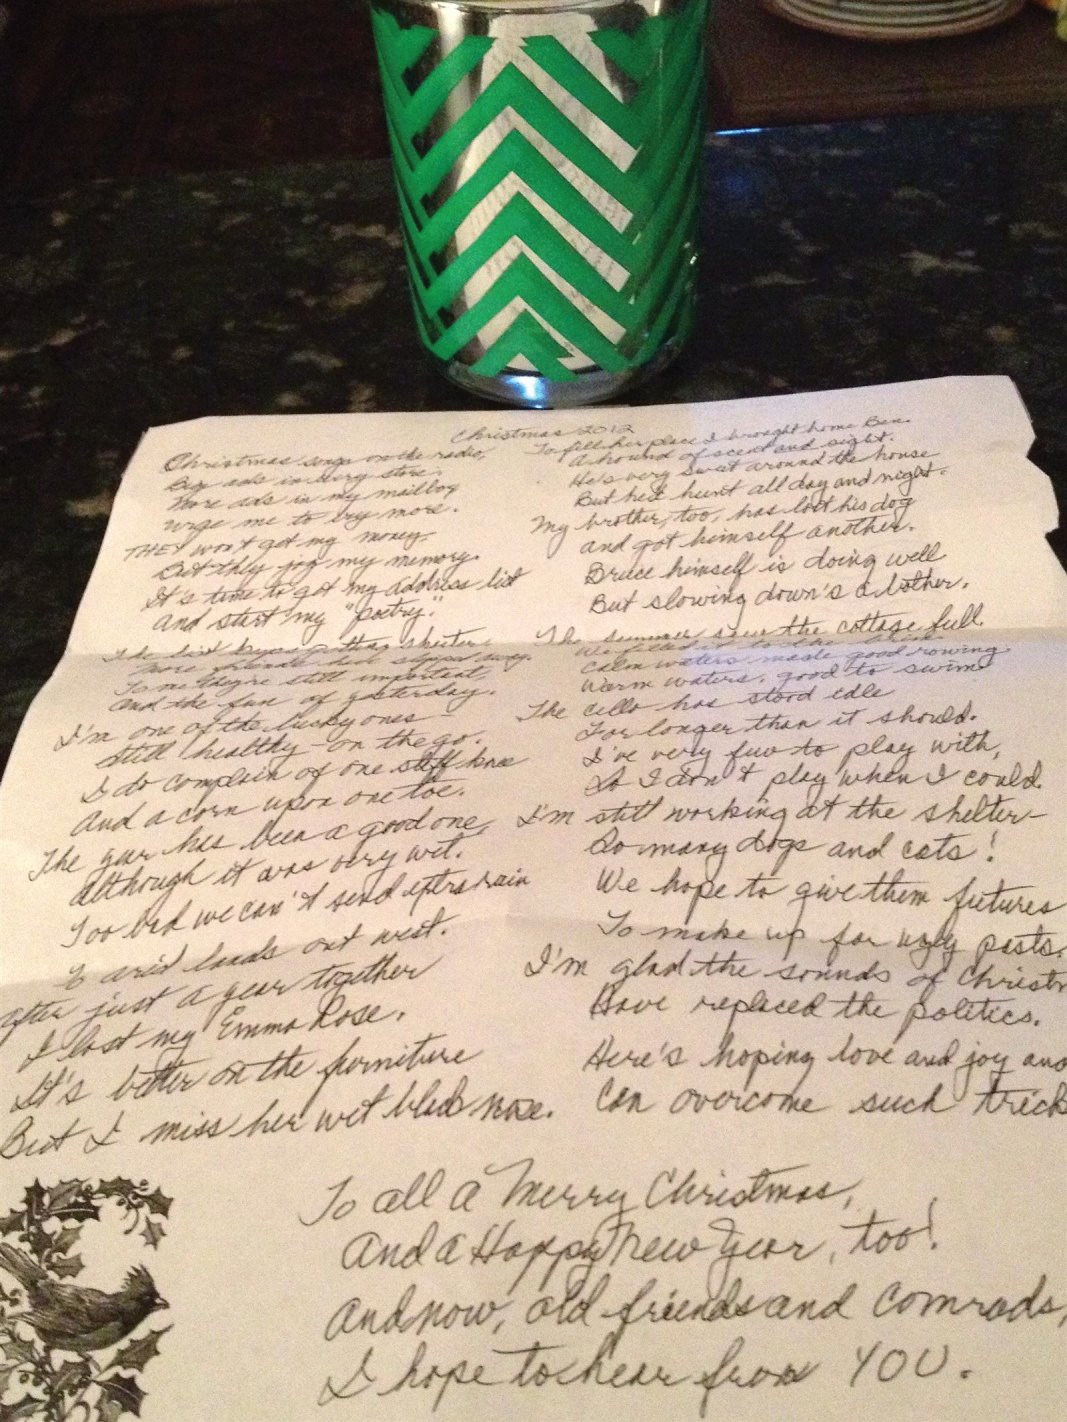 Christmas 2012
Christmas songs on the radio,
Big ads in every store.
More ads in my mailbox
urge me to buy more.
THEY won't get my money,
But they jog my memory.
It's time to get my address list
And start my "poetry".
The list keeps getting shorter
More friends have slipped away.
To me they're still important,
And the fun of yesterday.
I'm one of the lucky ones -
Still healthy - on the go.
I do complain of one stiff knee
And a corn upon one toe.
The year has been a good one,
although it was very wet.
Too bad we can't send extra rain
To arid lands out west.
After just a year together
I lost my Emma Rose.
It's better on the furniture
But I miss her wet black nose.
To fill her place I brought home Ben.
A hound of scent and sight.
He's very sweet around the house
But he'd hunt all day and night.
My brother, too, has lost his dog
and got himself another.
Bruce himself is doing well
But slowing down's a bother.
The summer saw the cottage full.
We filled it to the
Calm waters made good rowing
Warm waters, good to swim
The cello has stood idle
For longer than it should.
I've very few to play with,
So I don't play when I could.
I'm still working at the shelter-
So many dogs and cats!
We hope to give them futures
To make up for ugly pasts.
I'm glad the sounds of Christm
Have replaced the politics.
Here's hoping love and joy and
Can overcome such trick
To all a Merry Christmas,
And a Happy New Year, too!
And now, old friends and comrads,
I hope to hear from YOU.